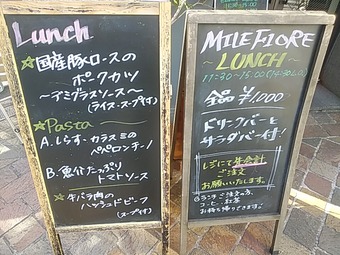 Lunch
☆国産豚ロースの
ポークカツ
〜デミグラスソース〜
(ライス・スープ付)
☆Pasta
A. しらす・カラスミの
ペペロンチーノ
B. 魚介たっぷり
トマトソース
☆牛バラ肉の
ハッシュドビーフ
(スープ付)
MILLE FIORE
〜LUNCH〜
11:30-15:00 (14:30 L.O)
全品 ¥1,000
ドリンクバーと
サラダバー付!
レジにて先会計
ご注文
お願いいたします。
ランチご注文の方
コーヒー、紅茶
お持ち帰りできます。